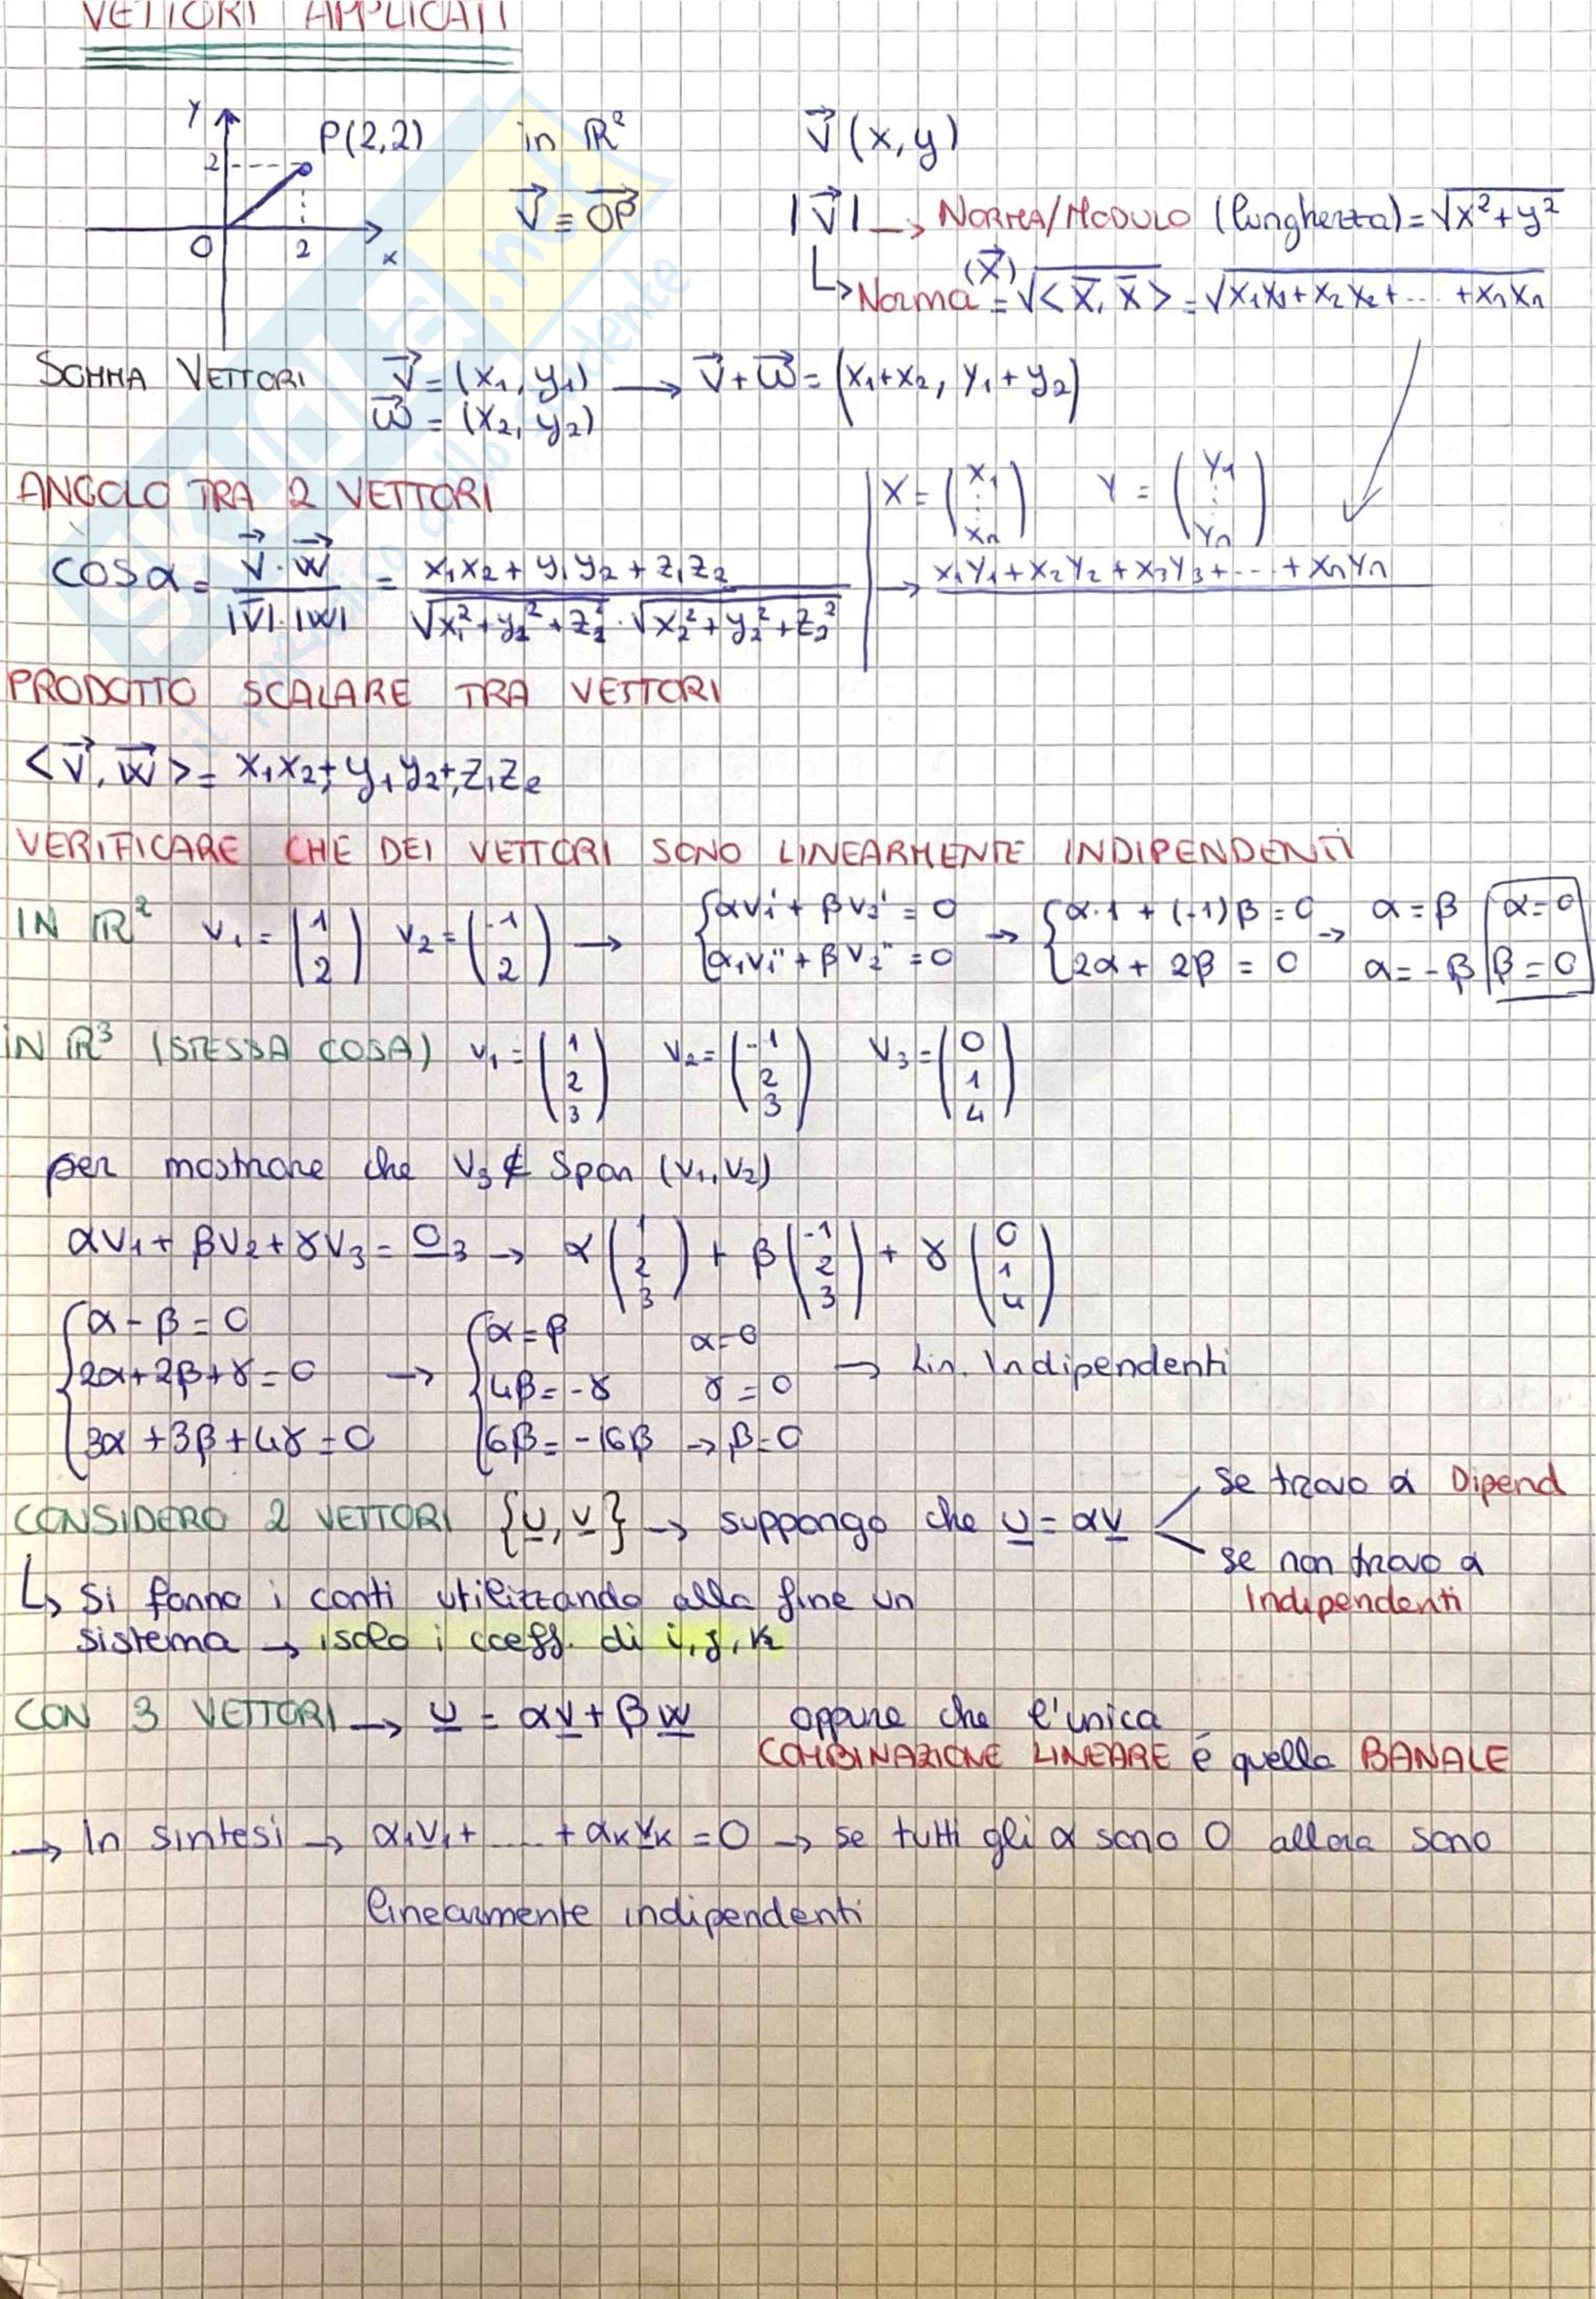 VETTORI APPLICATI
y P(2,2) in ℝ² V⃗(x,y)
2
V⃗ = OP⃗ |V⃗| → NORMA/MODULO (lunghezza) = √x²+y²
O 2 x
↳ Norma (X⃗) = √<X̄, X̄> = √x₁x₁+x₂x₂+....+xₙxₙ
SOMMA VETTORI V⃗ = (x₁, y₁) → V⃗+W⃗ = (x₁+x₂, y₁+y₂)
W⃗ = (x₂, y₂)
ANGOLO TRA 2 VETTORI
X = (x₁ ⋮ xₙ) Y = (y₁ ⋮ yₙ)
cos α = V⃗·W⃗ / |V|·|W| = x₁x₂ + y₁y₂ + z₁z₂ / √x₁²+y₁²+z₁² · √x₂²+y₂²+z₂²
→ x₁y₁+x₂y₂+x₃y₃+....+xₙyₙ
PRODOTTO SCALARE TRA VETTORI
<V⃗, W⃗> = x₁x₂+y₁y₂+z₁z₂
VERIFICARE CHE DEI VETTORI SONO LINEARMENTE INDIPENDENTI
IN ℝ² v₁ = (1 2) v₂ = (-1 2) → {αv₁' + βv₂' = 0 → {α·1 + (-1)β = 0 → α = β α=0
{α₁v₁'' + βv₂'' = 0 {2α + 2β = 0 α = -β β = 0
IN ℝ³ (STESSA COSA) v₁ = (1 2 3) v₂ = (-1 2 3) v₃ = (0 1 4)
per mostrare che v₃ ∉ Span (v₁,v₂)
αv₁+ βv₂+γv₃ = 0₃ → α(1 2 3) + β(-1 2 3) + γ(0 1 4)
{α - β = 0 {α = β α=0
{2α+2β+γ=0 → {4β = -γ γ = 0 → Lin. Indipendenti
{3α+3β+4γ=0 {6β = -16β → β=0
CONSIDERO 2 VETTORI {u, v} → suppongo che u = αv
se trovo α Dipend
se non trovo α
Indipendenti
↳ Si fanno i conti utilizzando alla fine un
sistema → isolo i coeff. di i, j, k
CON 3 VETTORI → u = αv + βw oppure che l'unica
COMBINAZIONE LINEARE è quella BANALE
→ In sintesi → α₁v₁+....+αₖvₖ = 0 → se tutti gli α sono 0 allora sono
linearmente indipendenti
SKUOLA.net
il paradiso dello studente